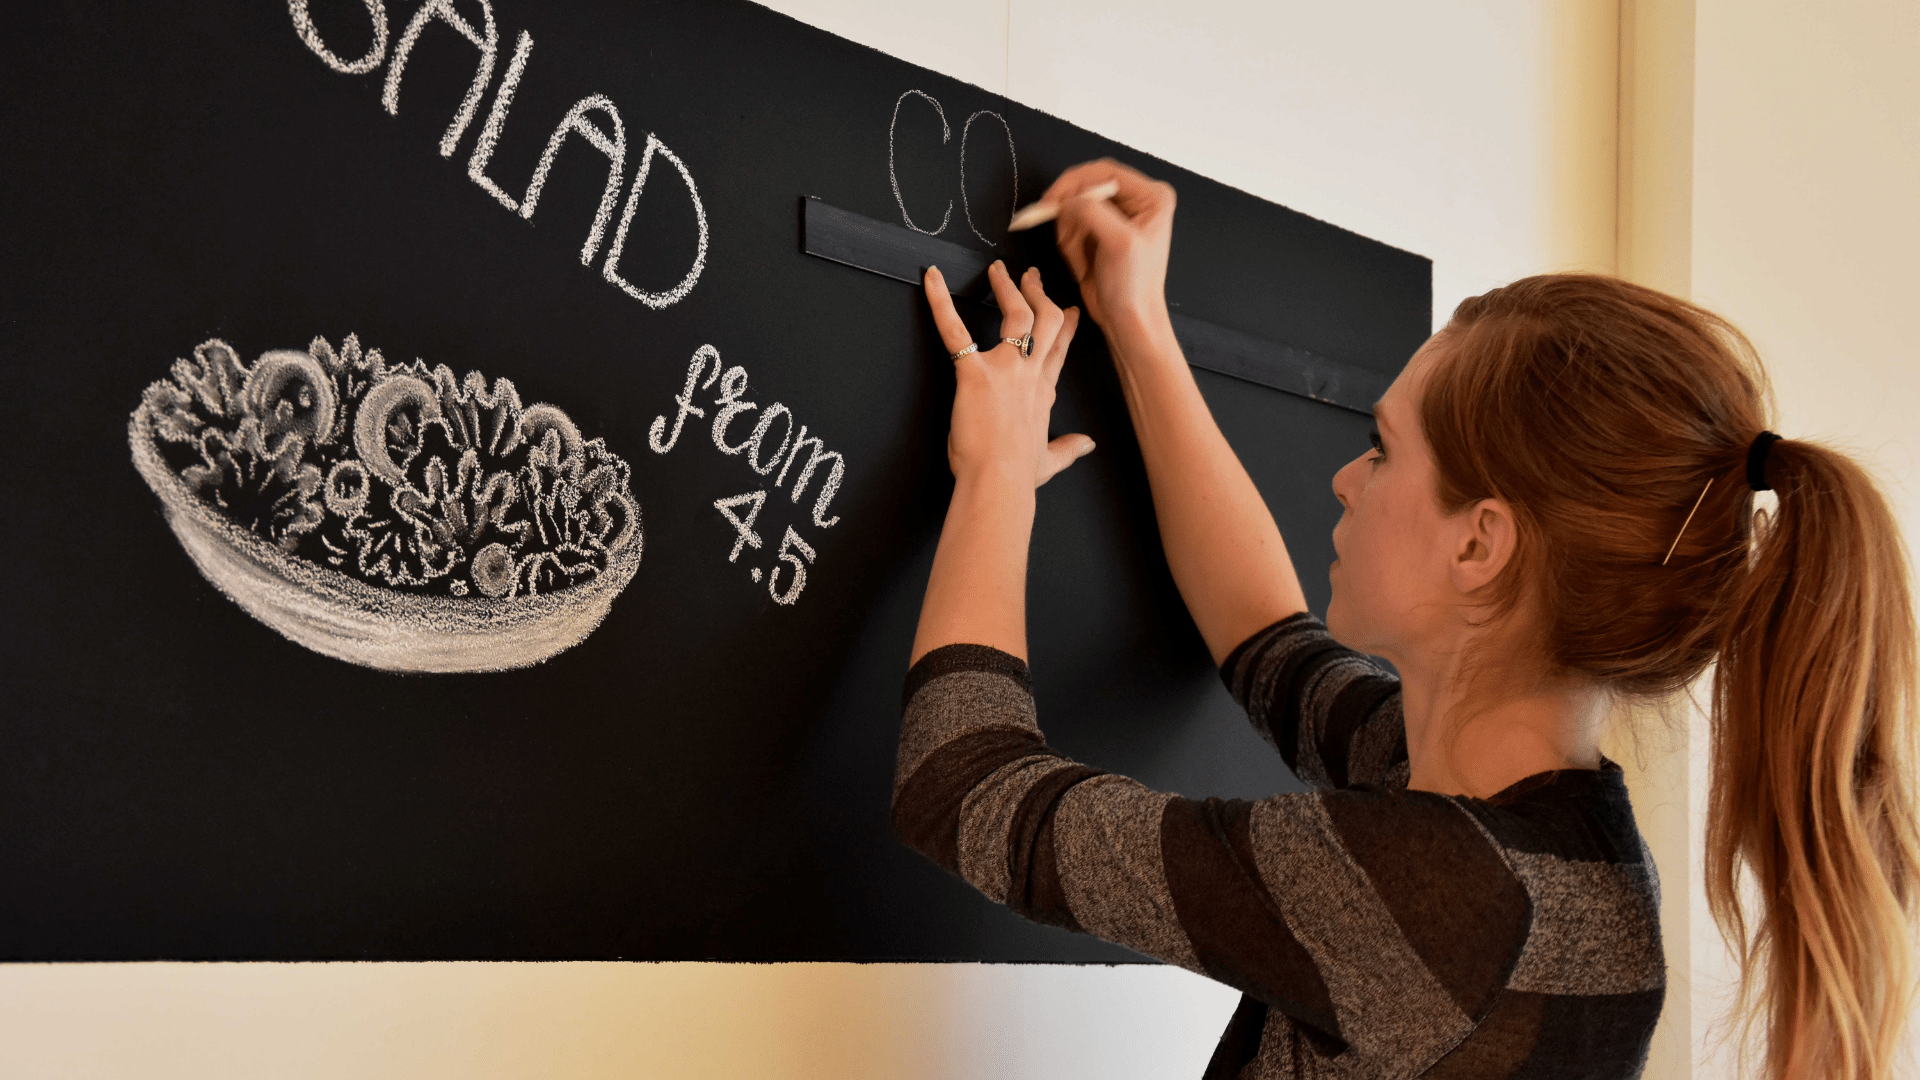 SALAD
from
4.5
CO